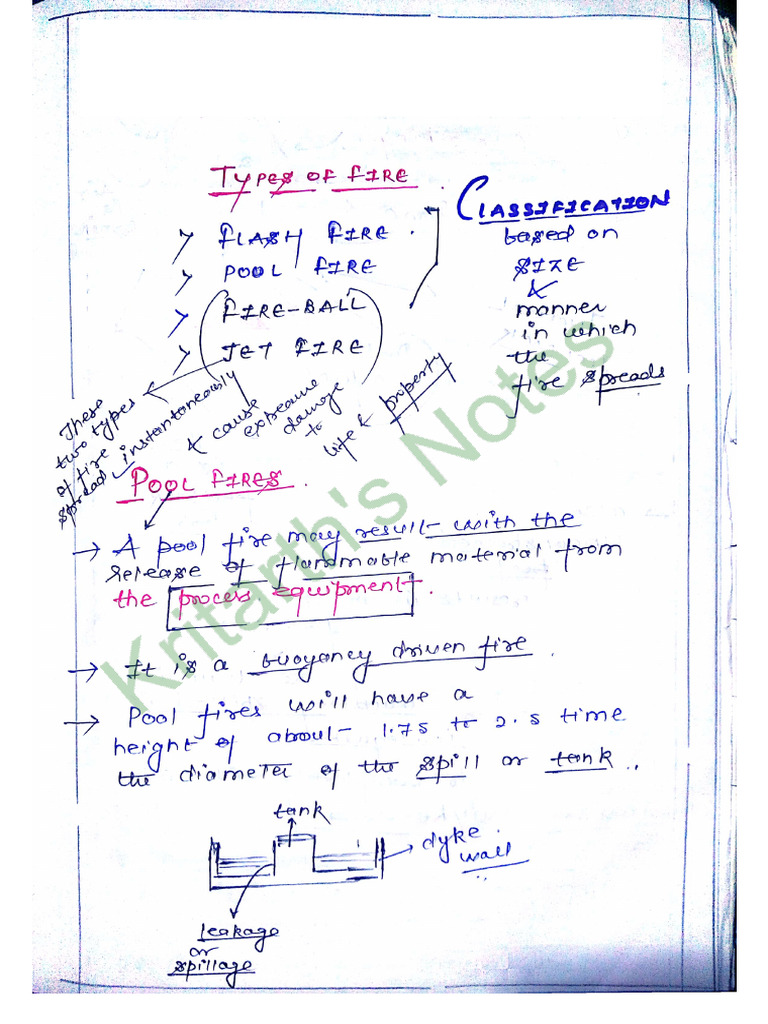 TYPES OF FIRE
> FLASH FIRE.
> POOL FIRE
> FIRE-BALL
> JET FIRE
CLASSIFICATION
based on
SIZE
&
manner
in which
the
fire spreads
These
two types
of fire
spread instantaneously
& cause
extreaume
damage
to
life & property
POOL FIRES.
→ A pool fire may result with the
release of flammable material from
the process equipment.
→ It is a buoyancy driven fire.
→ Pool fires will have a
height of about 1.75 to 2.5 time
the diameter of the spill or tank..
tank
dyke
wall
leakage
or
spillage
Kritarth's Notes